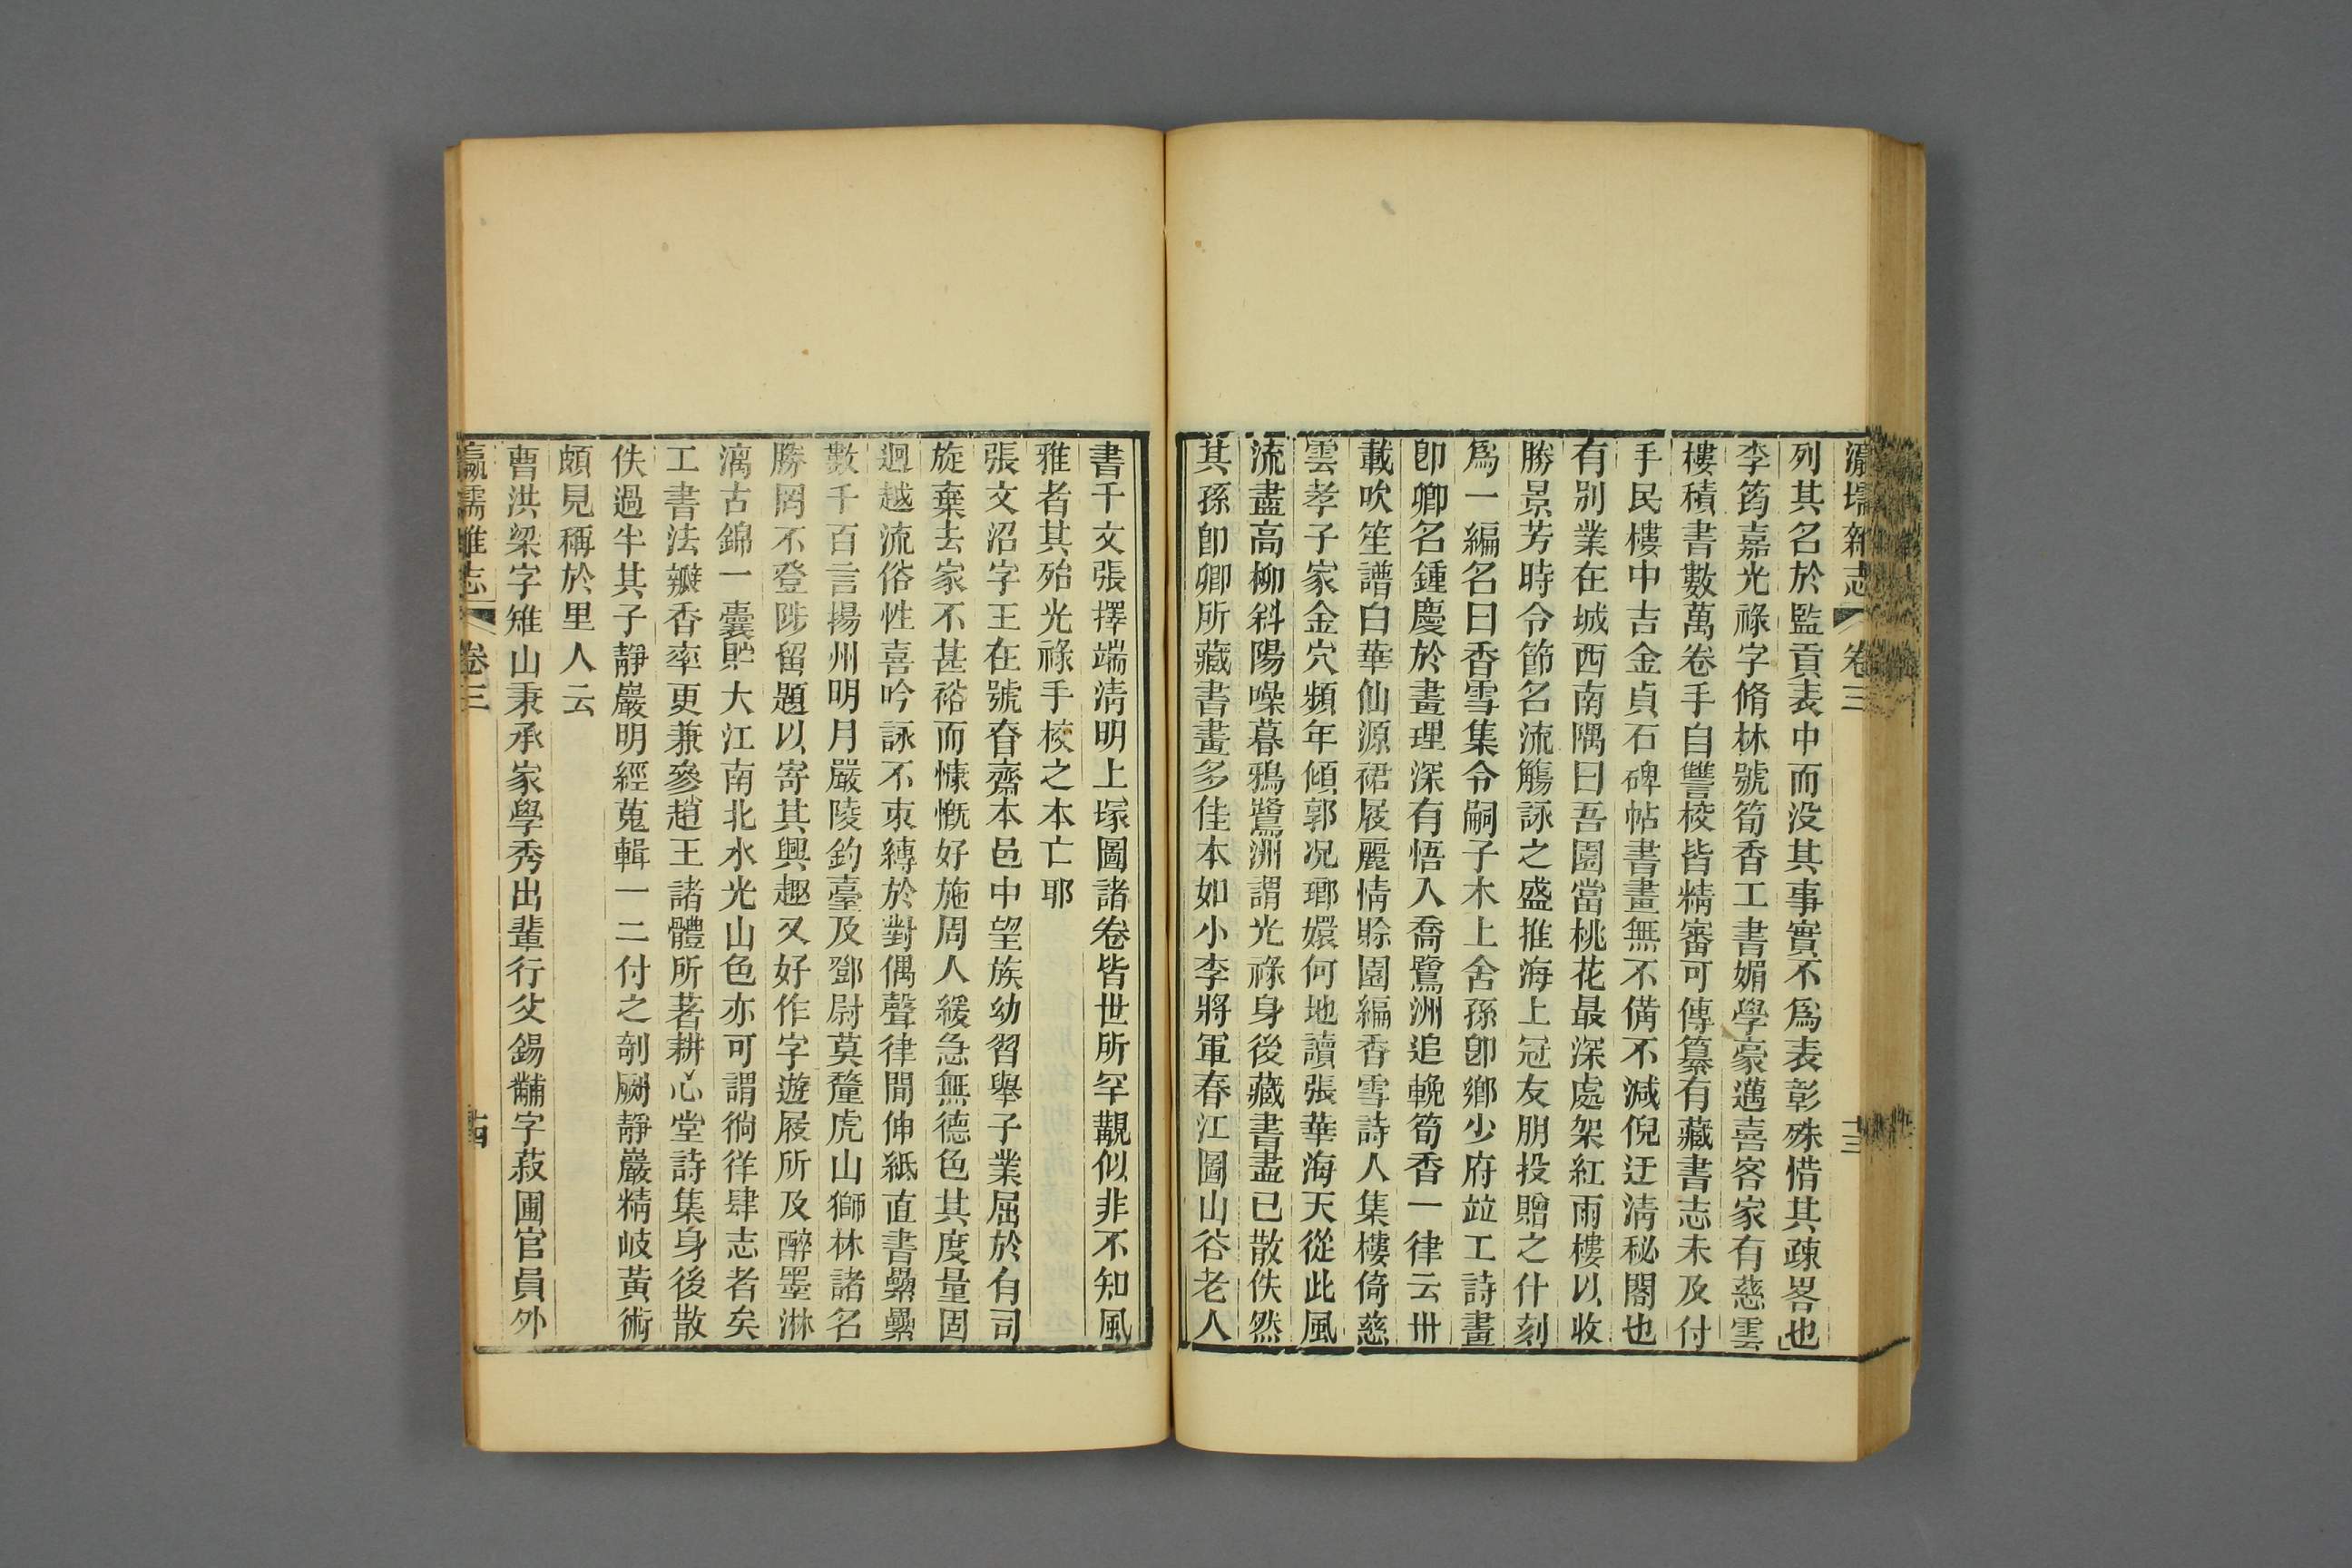 瀛壖雜志 卷三 十三
列其名於監貢表中而没其事實不爲表彰殊惜其疎畧也
李筠嘉光祿字脩林號筍香工書媚學豪邁喜客家有慈雲
樓積書數萬卷手自讐校皆精審可傳纂有藏書志未及付
手民樓中吉金貞石碑帖書畫無不備不減倪迂清秘閣也
有别業在城西南隅曰吾園當桃花最深處架紅雨樓以收
勝景芳時令節名流觴詠之盛推海上冠友朋投贈之什刻
爲一編名曰香雪集令嗣子木上舍孫卽鄉少府竝工詩畫
卽卿名鍾慶於畫理深有悟入喬鷺洲追輓筍香一律云卅
載吹笙譜白華仙源裙屐麗情賒園編香雪詩人集樓倚慈
雲孝子家金穴頻年傾郭况瑯嬛何地讀張華海天從此風
流盡高柳斜陽噪暮鴉鷺洲謂光祿身後藏書盡已散佚然
其孫卽卿所藏書畫多佳本如小李將軍春江圖山谷老人
書千文張擇端清明上塚圖諸卷皆世所罕覯似非不知風
雅者其殆光祿手校之本亡耶
張文沼字王在號眘齋本邑中望族幼習舉子業屈於有司
旋棄去家不甚裕而慷慨好施周人緩急無德色其度量固
迥越流俗性喜吟詠不束縛於對偶聲律間伸紙直書纍纍
數千百言揚州明月嚴陵釣臺及鄧尉莫釐虎山獅林諸名
勝罔不登陟留題以寄其興趣又好作字遊屐所及醉墨淋
漓古錦一囊貯大江南北水光山色亦可謂徜徉肆志者矣
工書法瓣香率更兼參趙王諸體所著耕心堂詩集身後散
佚過半其子靜巖明經蒐輯一二付之剞劂靜巖精岐黃術
頗見稱於里人云
曹洪梁字雉山秉承家學秀出輩行父錫黼字菽圃官員外
瀛壖雜志 卷三 十四